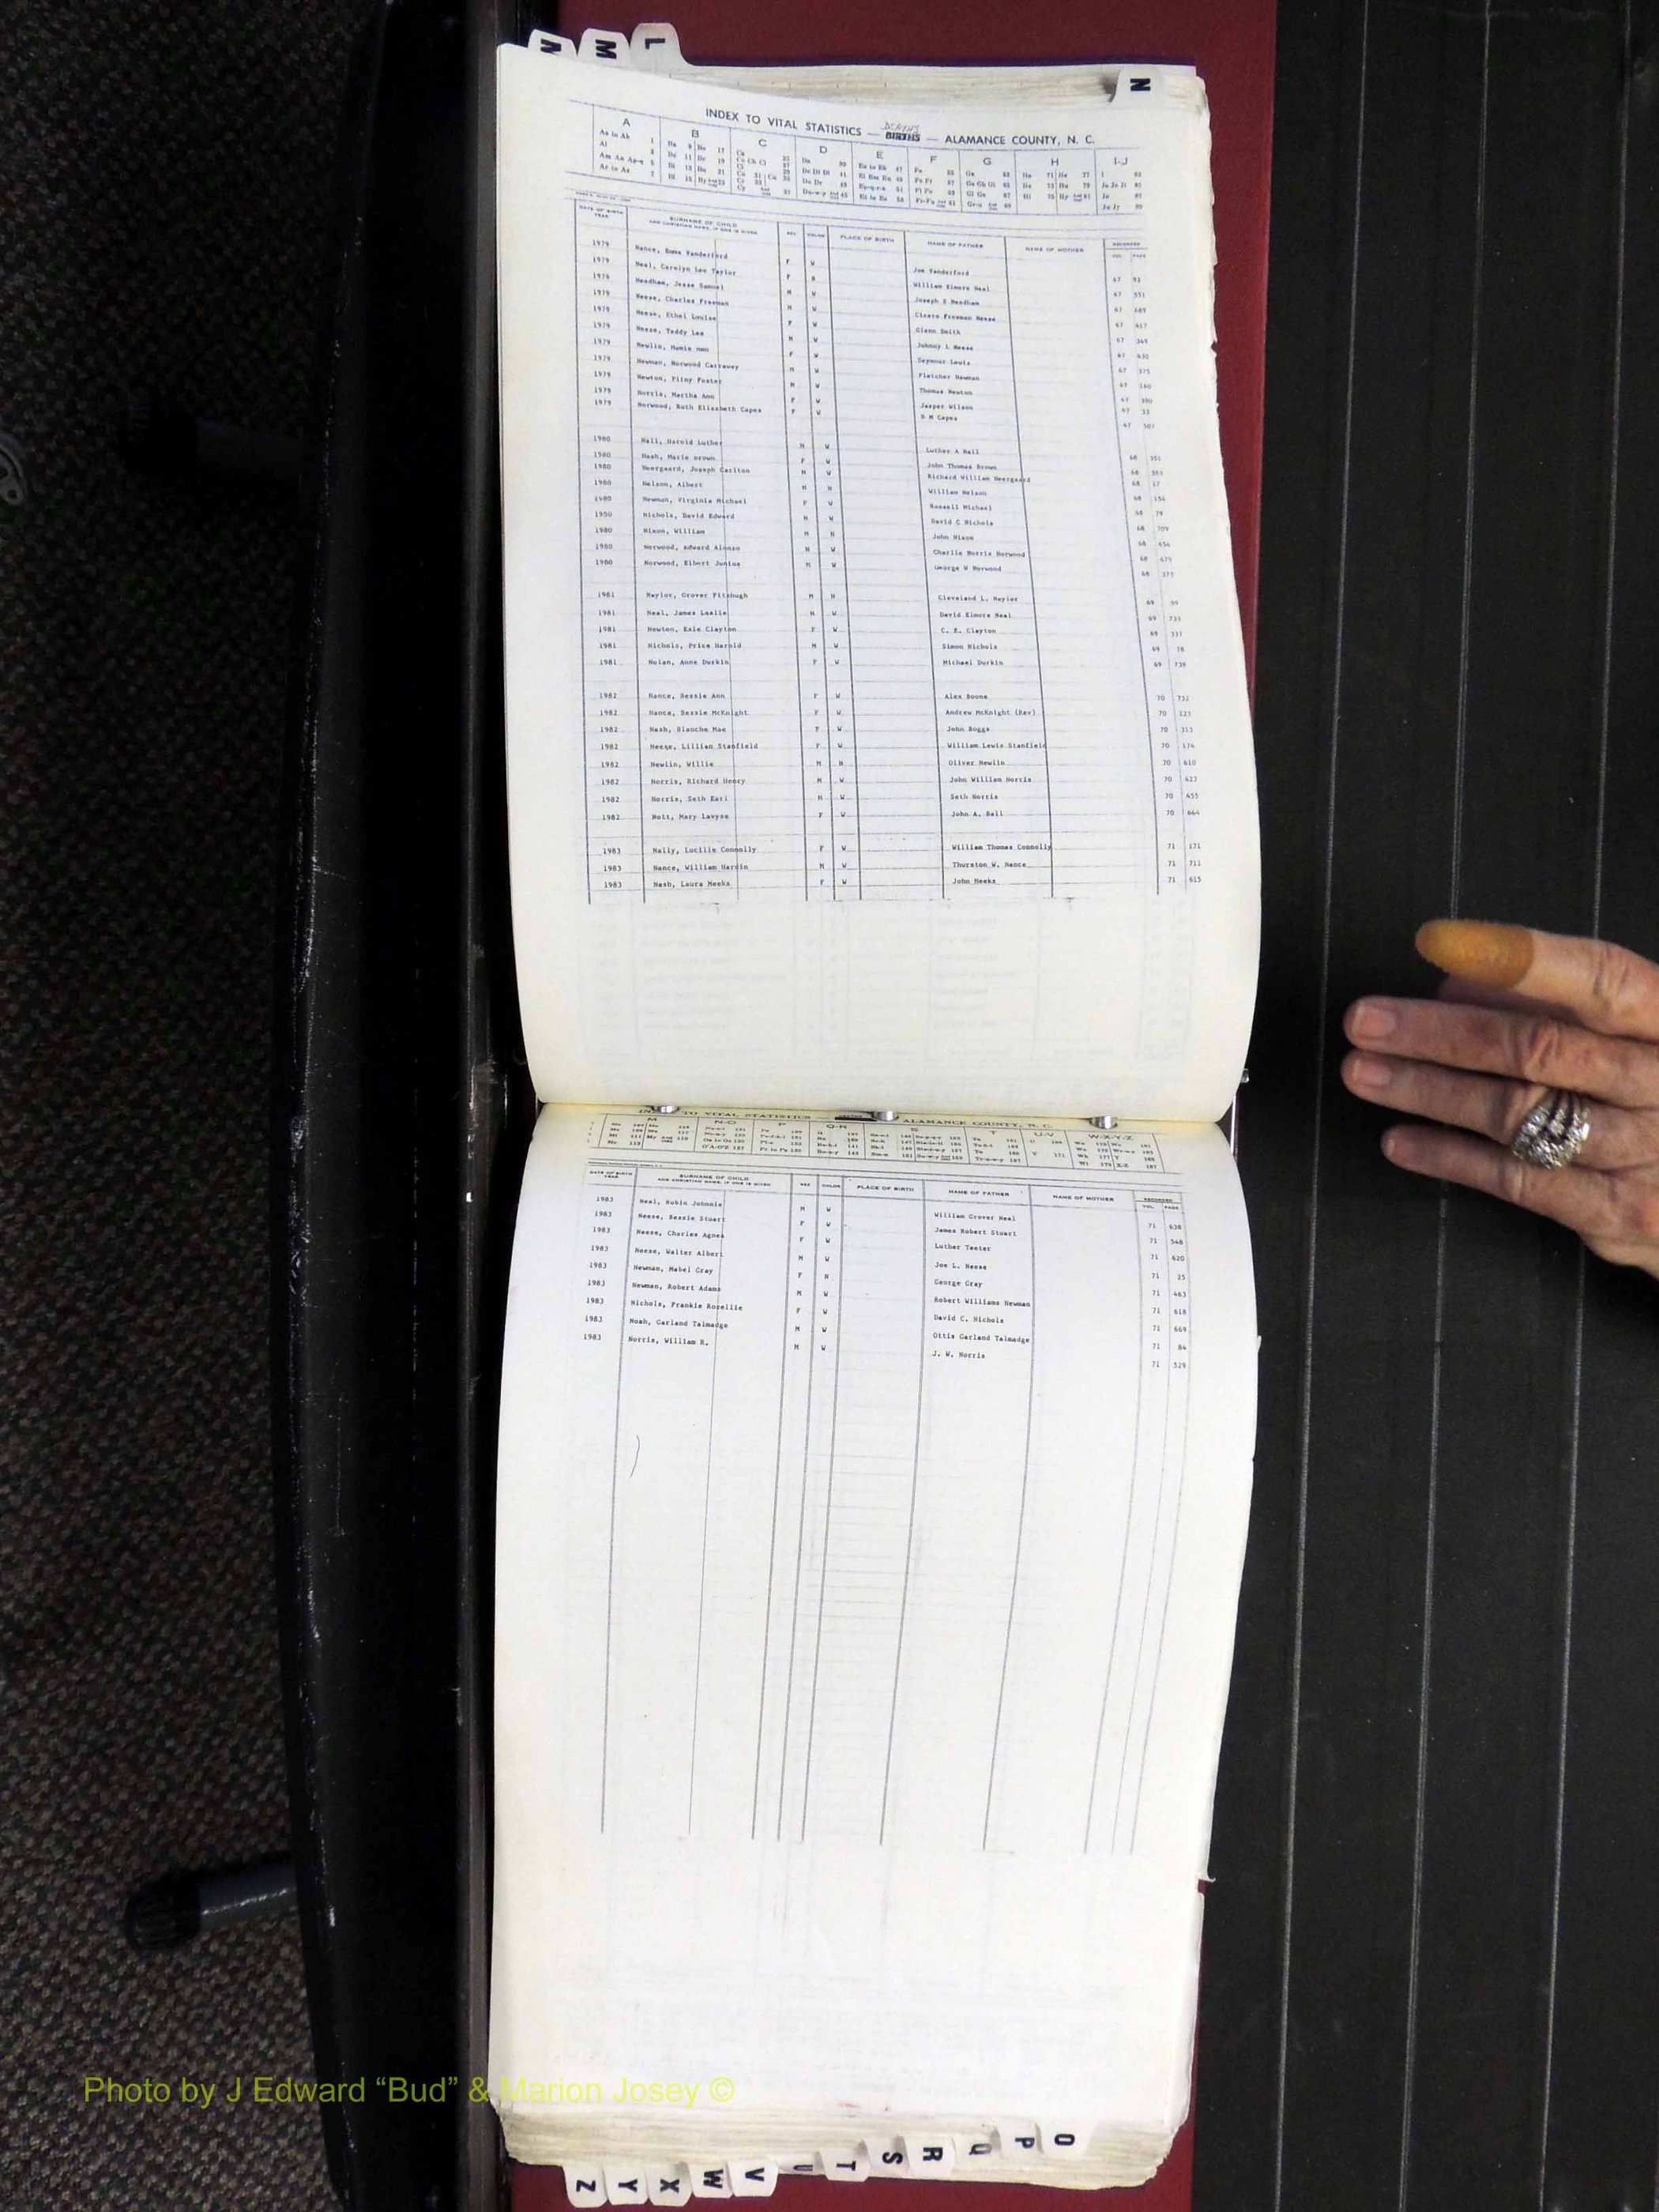 L
M
N
N
INDEX TO VITAL STATISTICS — DEATHS — ALAMANCE COUNTY, N. C.
A B C D E F G H I-J
DATE OF BIRTH YEAR SURNAME OF CHILD AND CHRISTIAN NAME, IF ONE IS GIVEN SEX COLOR PLACE OF BIRTH NAME OF FATHER NAME OF MOTHER RECORDED VOL. PAGE
1979 Nance, Emma Vanderford F W Joe Vanderford 67 92
1979 Neal, Carolyn Lee Taylor F B William Elmore Neal 67 551
1979 Needham, Jesse Samuel M W Joseph S Needham 67 685
1979 Neese, Charles Freeman M W Cicero Freeman Neese 67 417
1979 Neese, Ethel Louise F W Glenn Smith 67 349
1979 Neese, Teddy Lee M W Johnny L Neese 67 430
1979 Newlin, Mamie nmn F W Seymour Lewis 67 375
1979 Newman, Norwood Carraway M W Fletcher Newman 67 160
1979 Newton, Pliny Foster M W Thomas Newton 67 390
1979 Norris, Martha Ann F W Jasper Wilson 67 13
1979 Norwood, Ruth Elizabeth Capes F W B M Capes 67 507
1980 Nall, Harold Luther M W Luther A Nall 68 351
1980 Nash, Marie Brown F W John Thomas Brown 68 383
1980 Neergaard, Joseph Carlton M W Richard William Neergaard 68 17
1980 Nelson, Albert M N William Nelson 68 154
1980 Newman, Virginia Michael F W Russell Michael 68 79
1980 Nichols, David Edward M W David C Nichols 68 709
1980 Nixon, William M N John Nixon 68 654
1980 Norwood, Edward Alonzo M W Charlie Norris Norwood 68 479
1980 Norwood, Elbert Junius M W George W Norwood 68 375
1981 Naylor, Grover Fitzhugh M N Cleveland L. Naylor 69 99
1981 Neal, James Leslie M W David Elmore Neal 69 733
1981 Newton, Exie Clayton F W C. E. Clayton 69 331
1981 Nichols, Price Harold M W Simon Nichols 69 78
1981 Nolan, Anne Durkin F W Michael Durkin 69 739
1982 Nance, Bessie Ann F W Alex Boone 70 732
1982 Nance, Bessie McKnight F W Andrew McKnight (Rev) 70 123
1982 Nash, Blanche Mae F W John Boggs 70 313
1982 Neese, Lillian Stanfield F W William Lewis Stanfield 70 174
1982 Newlin, Willie M N Oliver Newlin 70 610
1982 Norris, Richard Henry M W John William Norris 70 427
1982 Norris, Seth Earl M W Seth Norris 70 455
1982 Nott, Mary Lavyne F W John A. Bell 70 664
1983 Nally, Lucille Connolly F W William Thomas Connolly 71 171
1983 Nance, William Hardin M W Thurston W. Nance 71 711
1983 Nash, Laura Meeks F W John Meeks 71 615
INDEX TO VITAL STATISTICS — ALAMANCE COUNTY, N. C.
M N-O P Q-R S T U-V W-X-Y-Z
DATE OF BIRTH YEAR SURNAME OF CHILD AND CHRISTIAN NAME, IF ONE IS GIVEN SEX COLOR PLACE OF BIRTH NAME OF FATHER NAME OF MOTHER RECORDED VOL. PAGE
1983 Neal, Rubin Johnnie M W William Grover Neal 71 638
1983 Neese, Bessie Stuart F W James Robert Stuart 71 548
1983 Neese, Charles Agnes F W Luther Teeter 71 620
1983 Neese, Walter Albert M W Joe L. Neese 71 25
1983 Newman, Mabel Gray F N George Gray 71 463
1983 Newman, Robert Adams M W Robert Williams Newman 71 618
1983 Nichols, Frankie Rozellie F W David C. Nichols 71 669
1983 Noah, Garland Talmadge M W Ottis Garland Talmadge 71 84
1983 Norris, William R. M W J. W. Norris 71 529
Photo by J Edward “Bud” & Marion Josey ©
O
P
Q
R
S
T
U
V
W
X
Y
Z